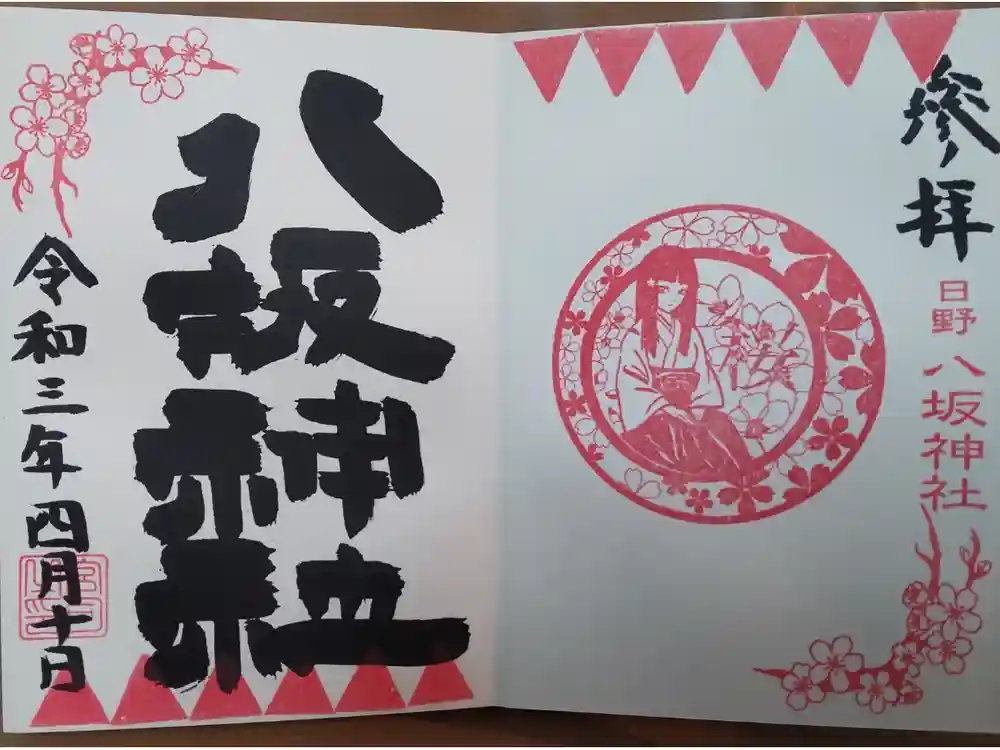 参拝
日野 八坂神社
八坂神社
令和三年四月十日